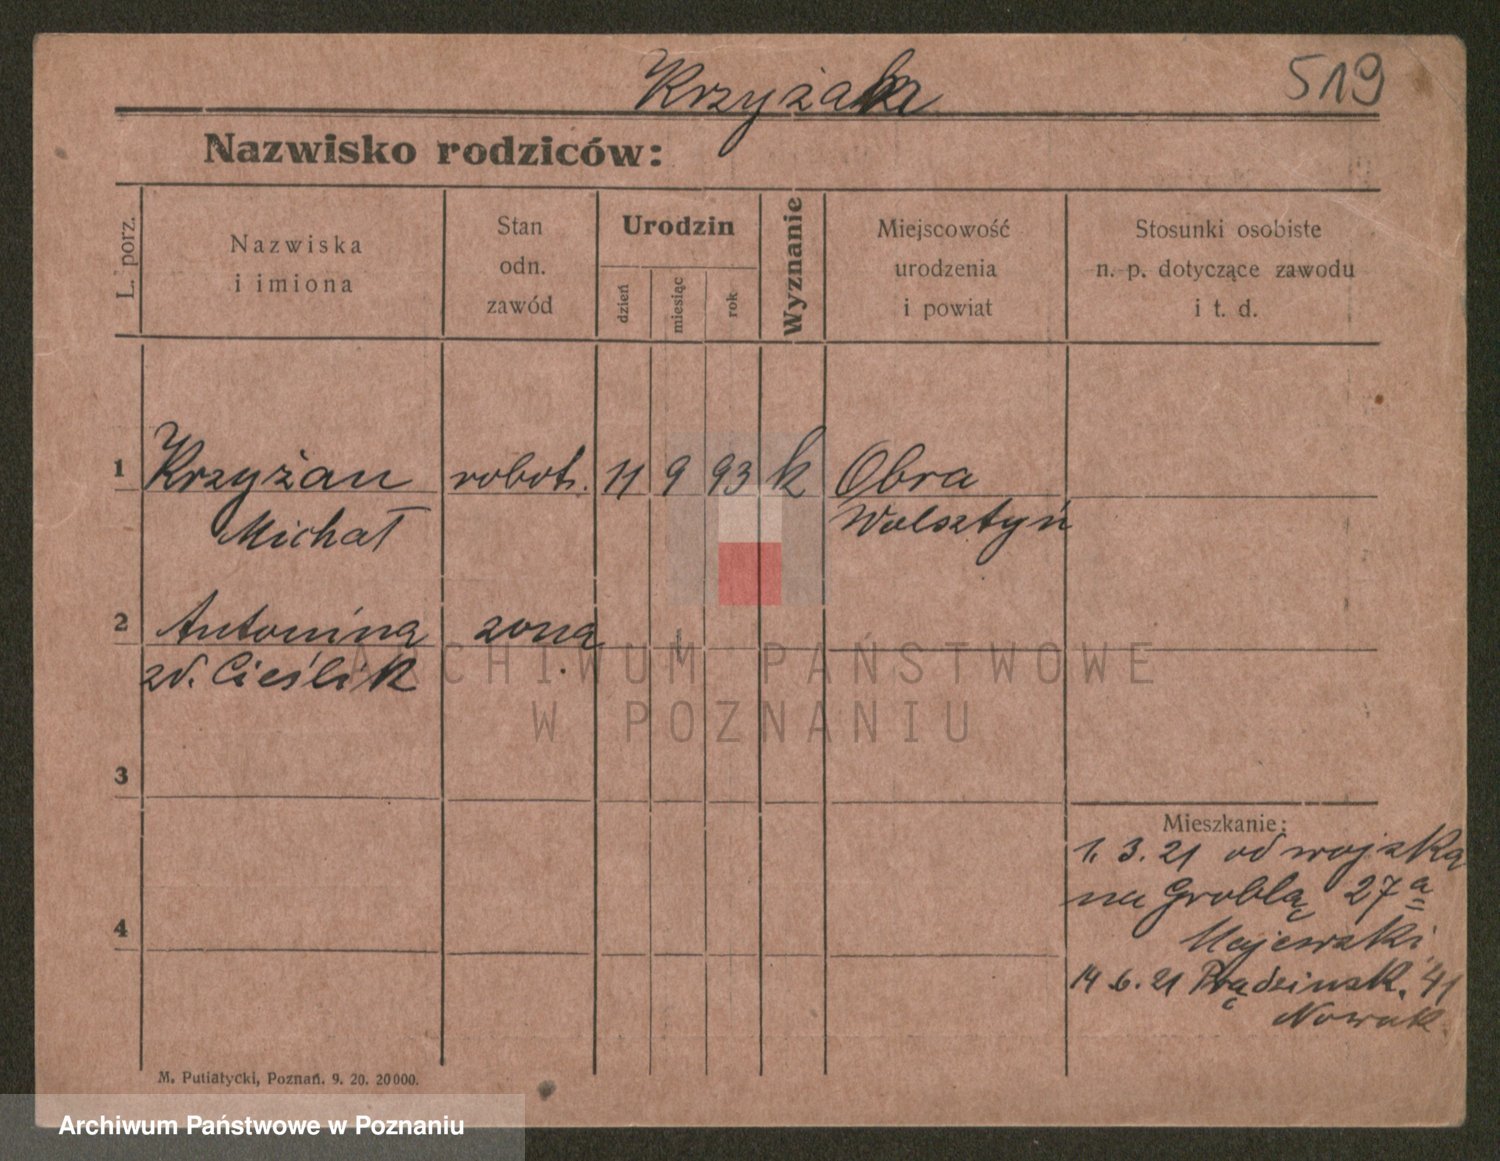 Krzyżan
519
Nazwisko rodziców:
L. porz.
Nazwiska
i imiona
Stan
odn.
zawód
Urodzin
dzień
miesiąc
rok
Wyznanie
Miejscowość
urodzenia
i powiat
Stosunki osobiste
n. p. dotyczące zawodu
i t. d.
1 Krzyżan robotn. 11 9 93 k Obra
Michał Wolsztyń
2 Antonina żona
zd. Cieślik
3
4
Mieszkanie:
1. 3. 21 od wojska
na Groblą 27a
Majewski
14.6.21 Prądzinsk. 41
Nowak.
M. Putiatycki, Poznań. 9. 20. 20000.
ARCHIWUM PAŃSTWOWE
W POZNANIU
Archiwum Państwowe w Poznaniu